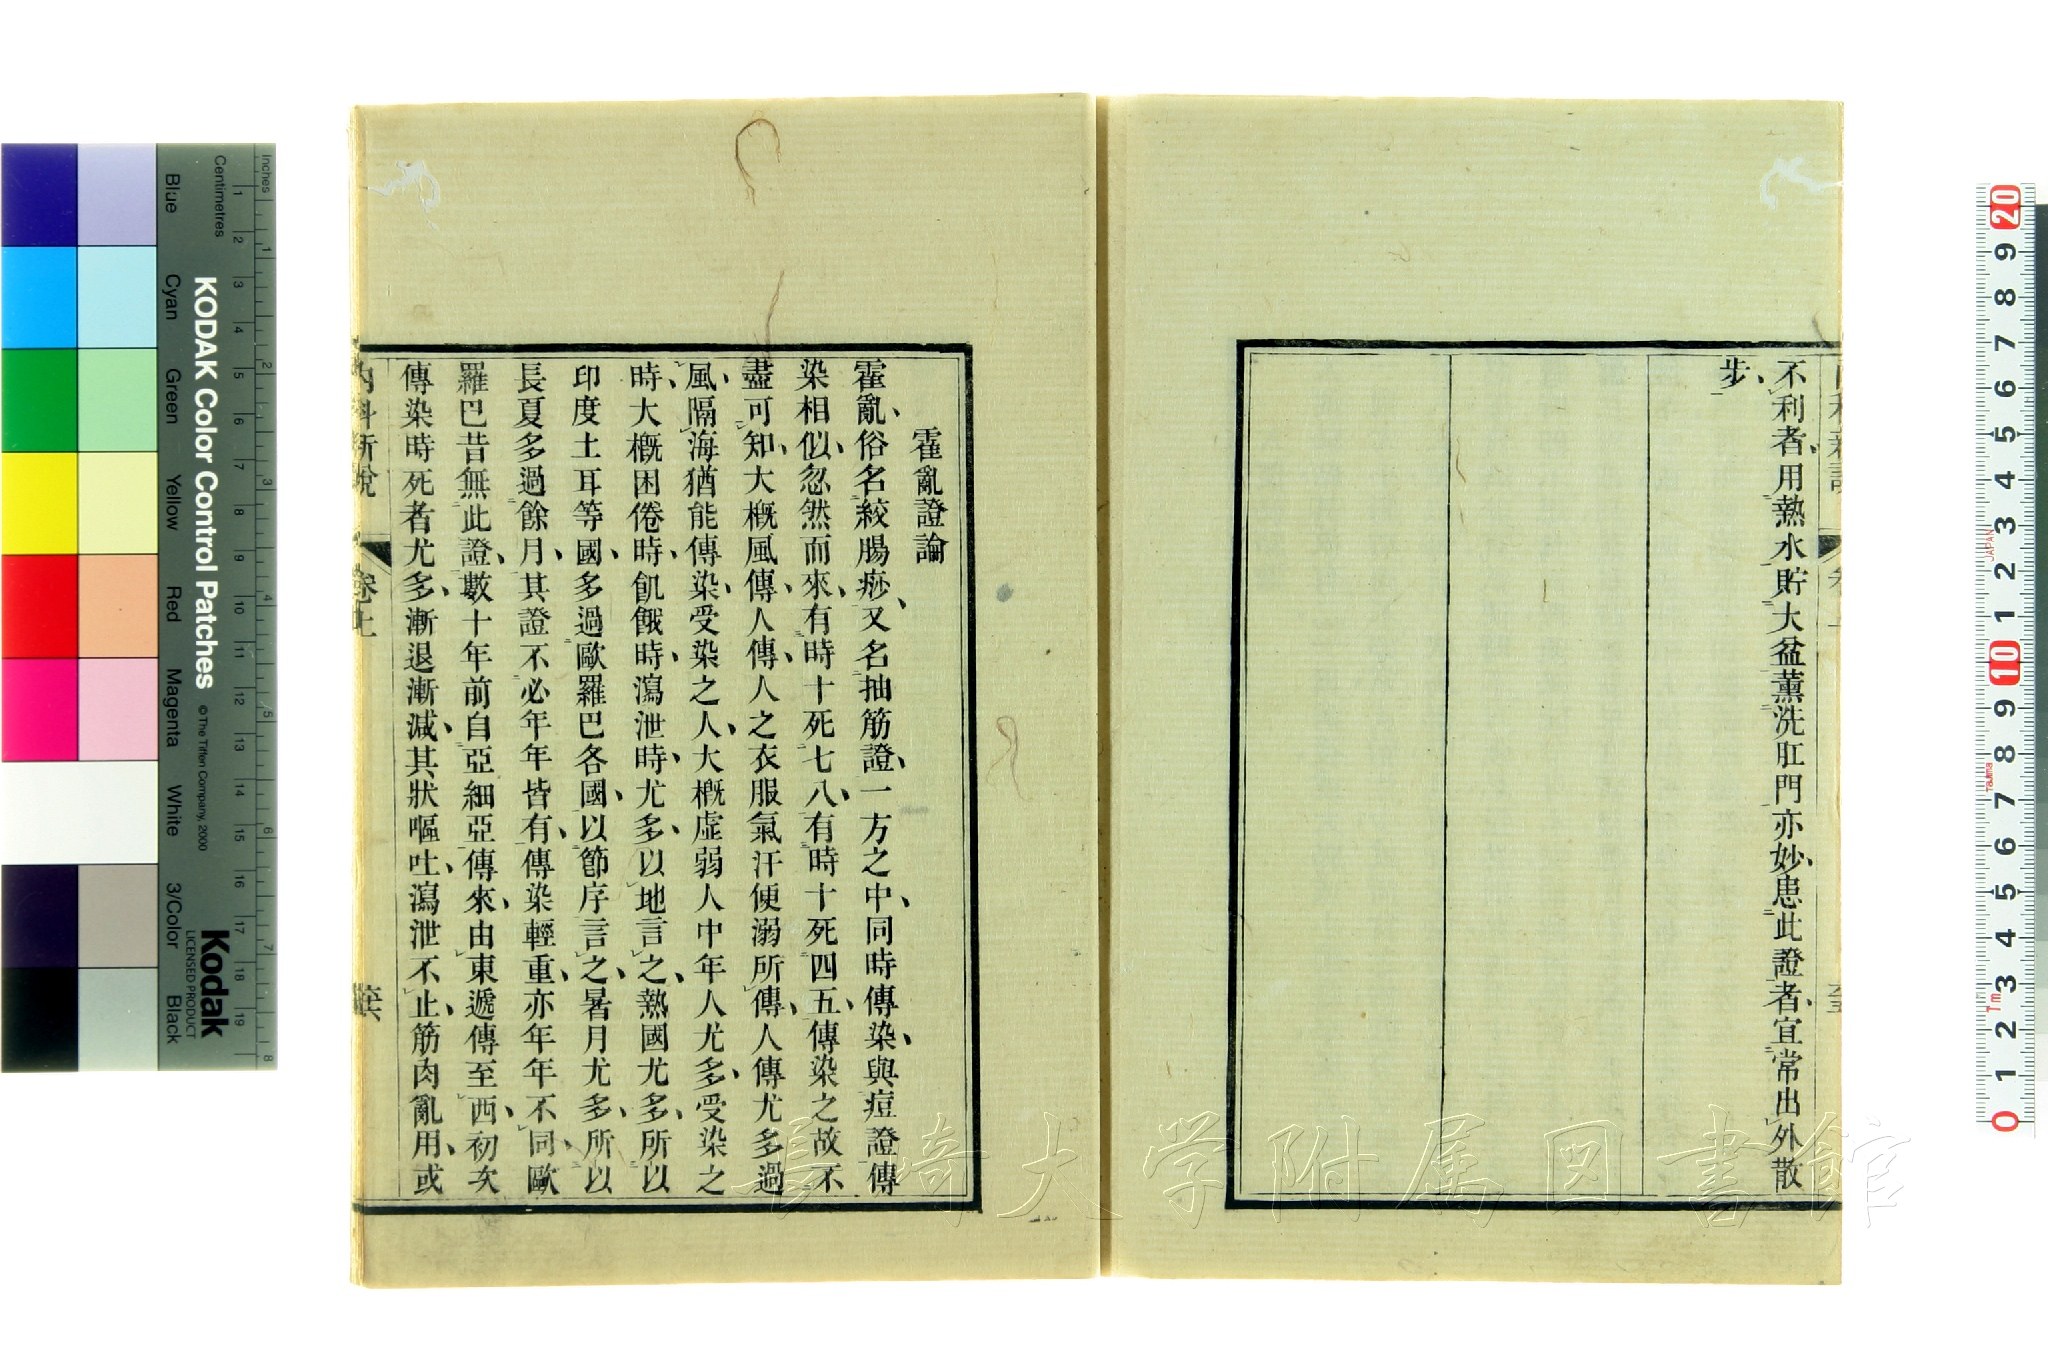 不利者、用熱水貯大盆薰洗肛門亦妙、患此證者、宜常出外散
步、
霍亂證論
霍亂、俗名絞腸痧、又名抽筋證、一方之中、同時傳染、與痘證傳
染相似、忽然而來、有時十死七八、有時十死四五、傳染之故不
盡可知、大概風傳、人傳、人之衣服氣汗便溺所傳、人傳尤多過
風、隔海猶能傳染、受染之人、大概虛弱人中年人尤多、受染之
時、大概困倦時、飢餓時、瀉泄時、尤多、以地言之、熱國尤多、所以
印度土耳等國、多過歐羅巴各國、以節序言之、暑月尤多、所以
長夏多過餘月、其證不必年年皆有、傳染輕重、亦年年不同、歐
羅巴昔無此證、數十年前自亞細亞傳來、由東遞傳至西、初次
傳染時死者尤多、漸退漸減、其狀嘔吐、瀉泄不止、筋肉亂用、或
內科新說
卷上
長崎大学附属図書館
KODAK Color Control Patches
© The Tiffen Company, 2000
Kodak
LICENSED PRODUCT
Inches
Centimetres
Blue
Cyan
Green
Yellow
Red
Magenta
White
3/Color
Black
1 2 3 4 5 6 7 8 9 10 11 12 13 14 15 16 17 18 19
1 2 3 4 5 6 7 8
20 9 8 7 6 5 4 3 2 1 10 9 8 7 6 5 4 3 2 1 0
JAPAN
Tajima